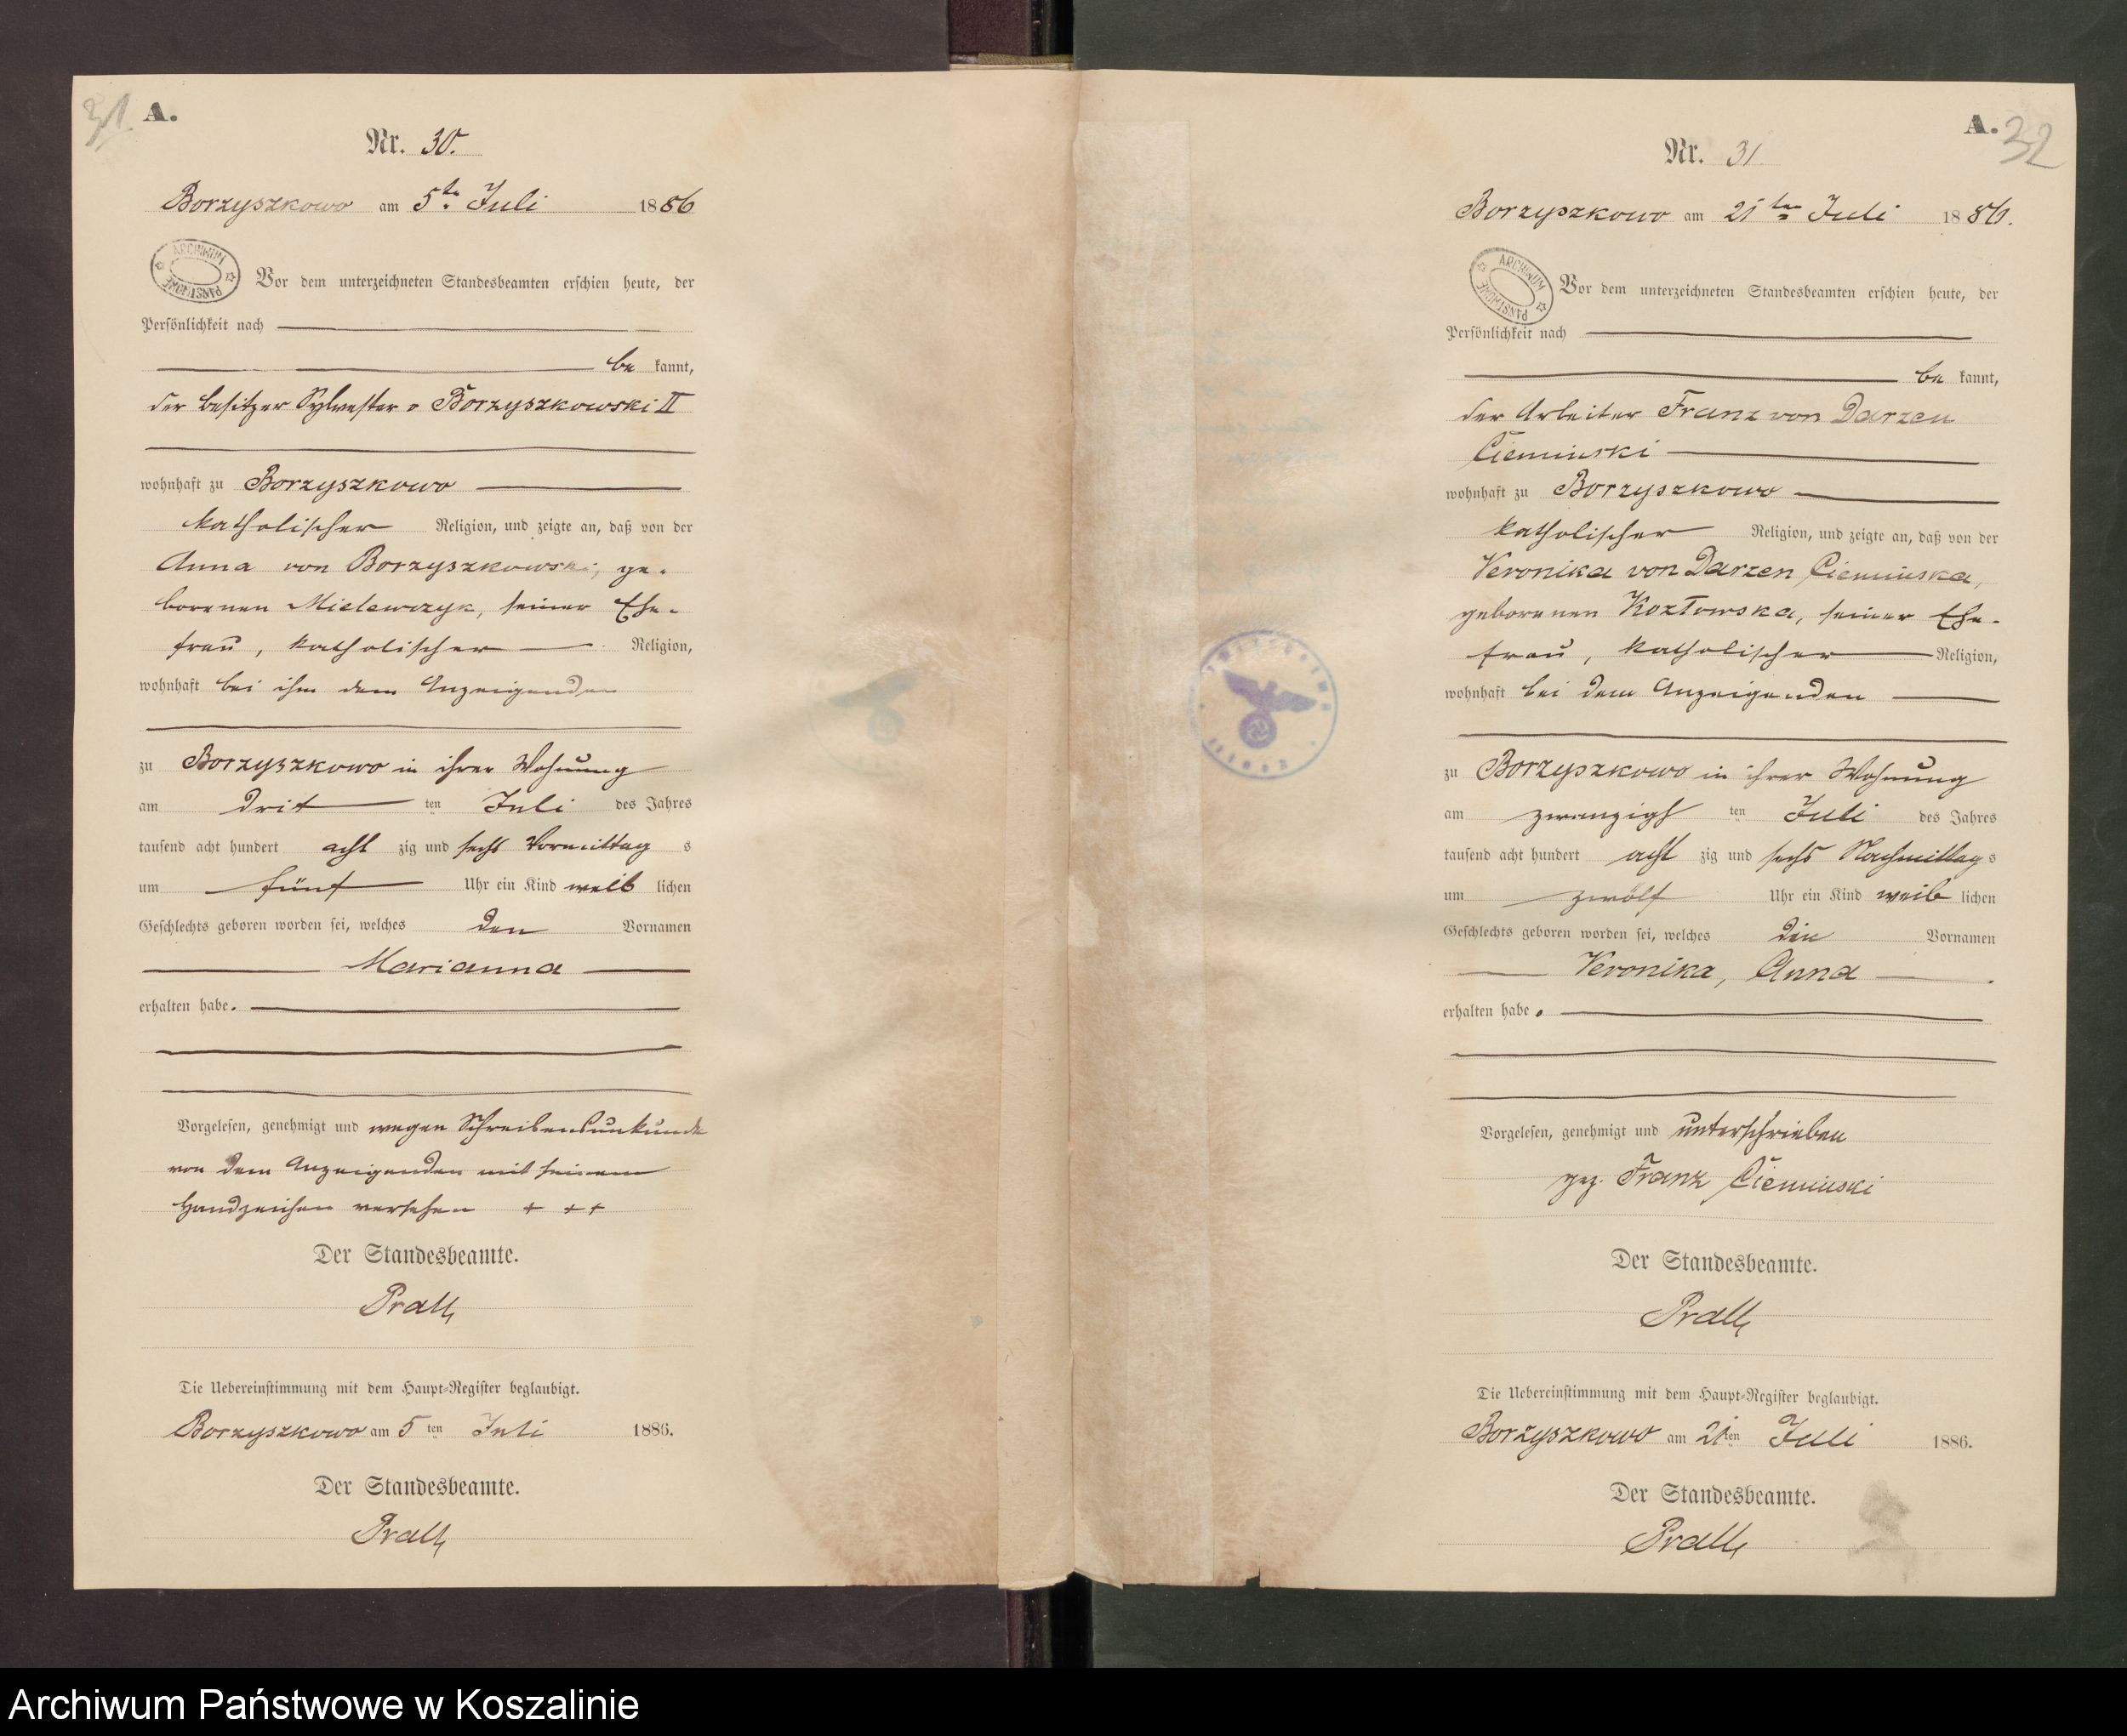 31
A.
Nr. 30.
Borzyszkowo am 5te Juli 1886
ARCHIWUM PAŃSTWOWE
Vor dem unterzeichneten Standesbeamten erschien heute, der
Persönlichkeit nach
be kannt,
der Besitzer Sylvester v Borzyszkowski II
wohnhaft zu Borzyszkowo
katholischer Religion, und zeigte an, daß von der
Anna von Borzyszkowski, ge-
borenen Mielewczyk, seiner Ehe-
frau, katholischer Religion,
wohnhaft bei ihm dem Anzeigenden
zu Borzyszkowo in ihrer Wohnung
am drit ten Juli des Jahres
tausend acht hundert acht zig und sechs Vormittag s
um fünf Uhr ein Kind weib lichen
Geschlechts geboren worden sei, welches den Vornamen
Marianna
erhalten habe.
Vorgelesen, genehmigt und wegen Schreibensunkunde
von dem Anzeigenden mit seinem
Handzeichen versehen + ++
Der Standesbeamte.
Prall
Die Uebereinstimmung mit dem Haupt-Register beglaubigt.
Borzyszkowo am 5 ten Juli 1886.
Der Standesbeamte.
Prall
A.
32
Nr. 31
Borzyszkowo am 21ten Juli 1886.
ARCHIWUM PAŃSTWOWE
Vor dem unterzeichneten Standesbeamten erschien heute, der
Persönlichkeit nach
be kannt,
der Arbeiter Franz von Darzen
Cieminski
wohnhaft zu Borzyszkowo
katholischer Religion, und zeigte an, daß von der
Veronika von Darzen Cieminska,
geborenen Kozłowska, seiner Ehe-
frau, katholischer Religion,
wohnhaft bei dem Anzeigenden
zu Borzyszkowo in ihrer Wohnung
am zwanzigs ten Juli des Jahres
tausend acht hundert acht zig und sechs Nachmittag s
um zwölf Uhr ein Kind weib lichen
Geschlechts geboren worden sei, welches die Vornamen
Veronika, Anna
erhalten habe.
Vorgelesen, genehmigt und unterschrieben
gez. Franz Cieminski
Der Standesbeamte.
Prall
Die Uebereinstimmung mit dem Haupt-Register beglaubigt.
Borzyszkowo am 21ten Juli 1886.
Der Standesbeamte.
Prall
Archiwum Państwowe w Koszalinie